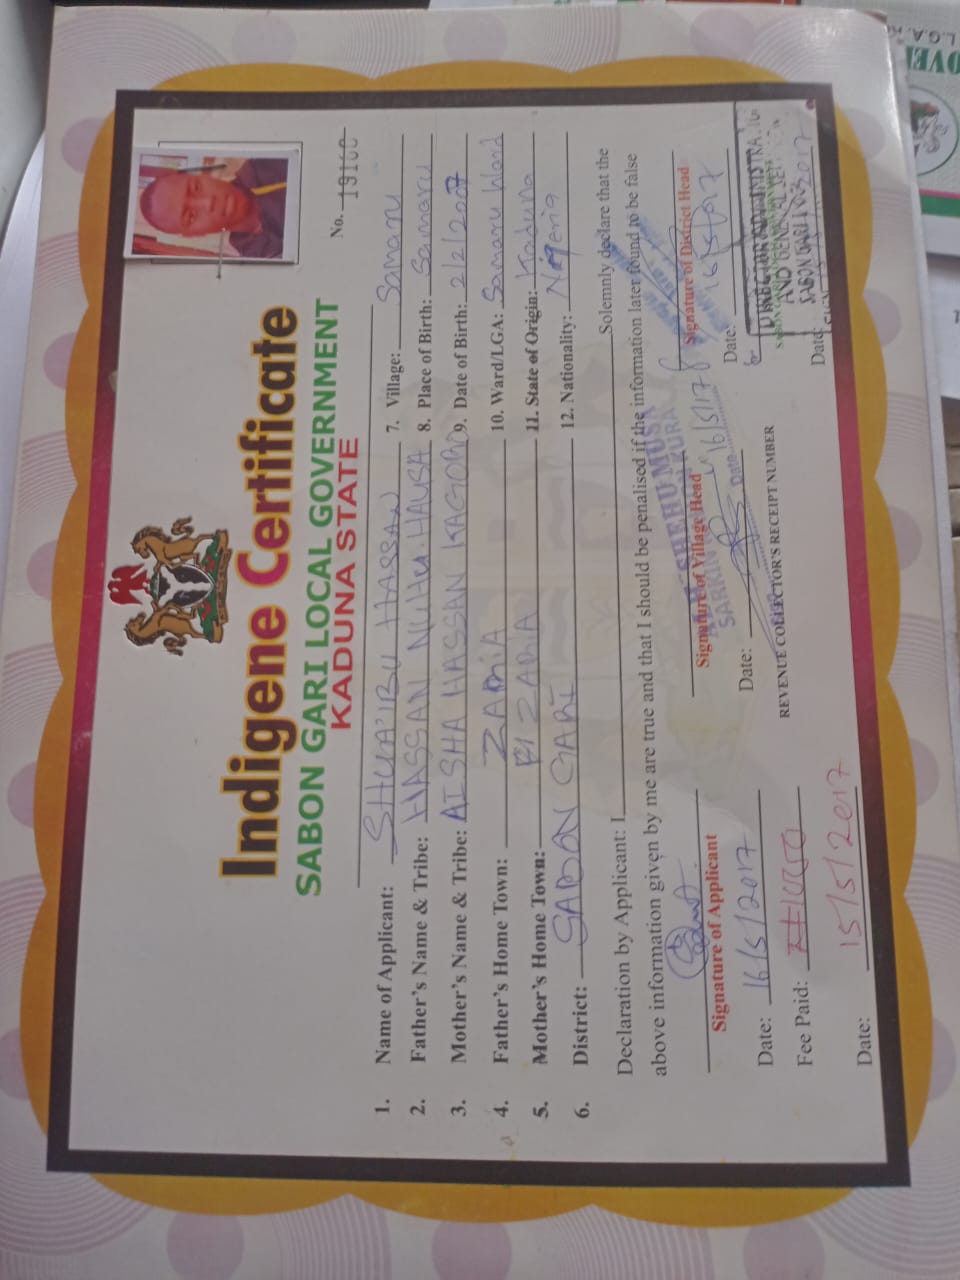 Indigene Certificate
SABON GARI LOCAL GOVERNMENT
KADUNA STATE
No. 19160
1. Name of Applicant: SHUA'IBU HASSAN
2. Father's Name & Tribe: HASSAN NUHU. HAUSA
3. Mother's Name & Tribe: AISHA HASSAN KAGORO
4. Father's Home Town: ZARIA
5. Mother's Home Town: ZARIA
6. District: SABON GARI
7. Village: Samaru
8. Place of Birth: Samaru
9. Date of Birth: 2/2/2007
10. Ward/LGA: Samaru Ward
11. State of Origin: Kaduna
12. Nationality: Nigeria
Declaration by Applicant: I Solemnly declare that the
above information given by me are true and that I should be penalised if the information later found to be false
Signature of Applicant
Date: 16/5/2017
Fee Paid:
Date: 15/5/2017
Signature of Village Head
SHEHU MUSA
SARKIN
Date: 16/5/17
REVENUE COLLECTOR'S RECEIPT NUMBER
Signature of District Head
Date:
DIRECTOR ADMINISTRA
AND GENERAL
SABON GARI
Date:
L.G.A.